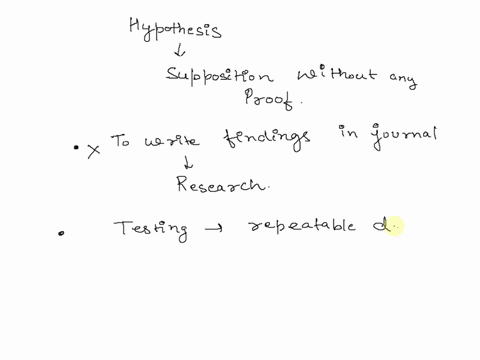 Hypothesis
↓
Supposition without any
Proof.
• × To write findings in journal
↓
Research.
• Testing → repeatable d